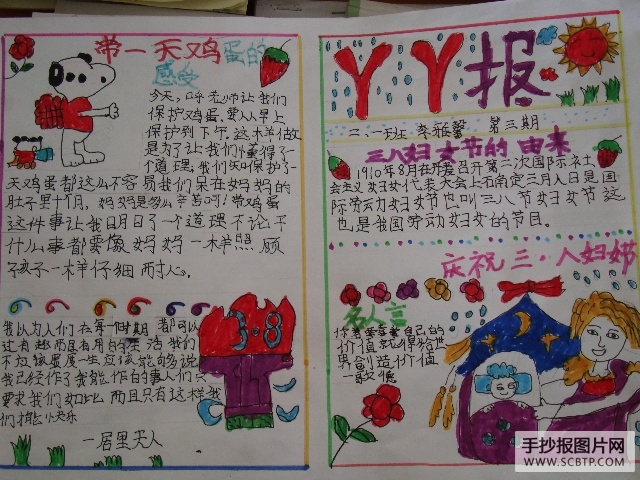 带一天鸡蛋的
感受
今天，呼老师让我们
保护鸡蛋，要从早上
保护到下午，这木羊做
是为了让我们懂得了一
个道理，我们知保护了一
天鸡蛋都这么不容易我们呆在妈妈的
肚子里十个月，妈妈是多么辛苦呵！带鸡蛋
这件事让我明白了一个道理不论干
什么事都要像妈妈一木羊照顾
孩子一木羊仔细耐心。
我以为人们在每一个时期都可以
过有趣而且有用的生活我们
不应该度一生应该能够说
我已经作了我能作的事人们只
要求我们如此而且只有这样我
们才能小快乐
一居里夫人
丫丫报
二·一班 李雅馨 第三期
三八妇女节的由来
1910年8月在丹麦召开第二次国际社
会主义妇女代表大会上确定三月八日是国
际劳动妇女节也叫三八节妇女节这
也是我国劳动妇女的节目。
庆祝三·八妇节
名人言
价值就得给世
界创造价值
一歌德
3·8
手抄报图片网
WWW.SCBTP.COM